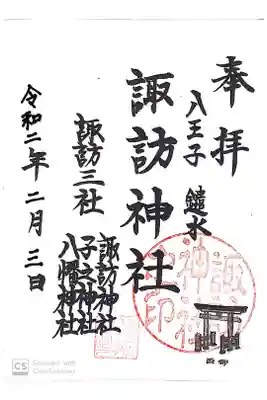 奉拝
八王子 鑓水
諏訪神社
諏訪三社
諏訪神社
子之神社
八幡神社
令和二年二月三日
CS Scanned with
CamScanner